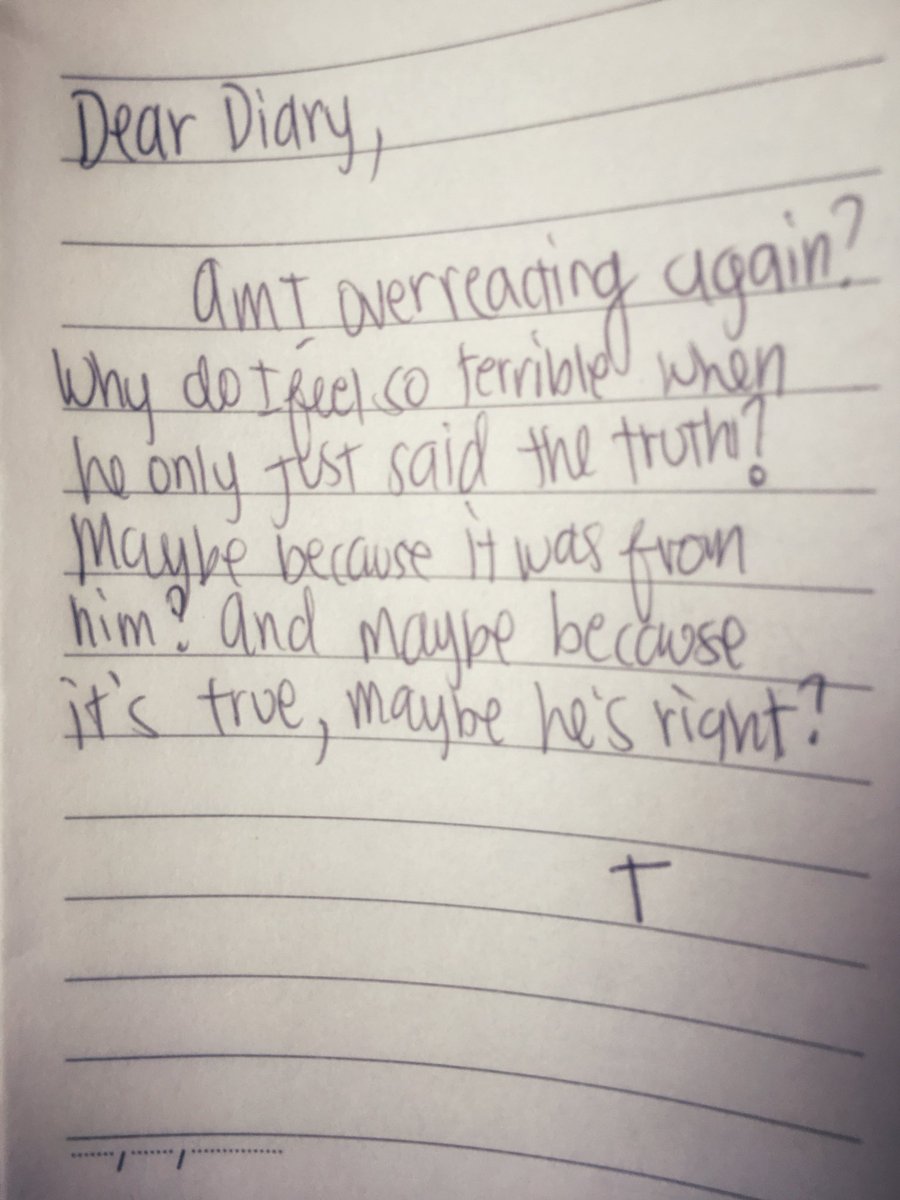 Dear Diary,
Am I overreacting again?
Why do I feel so terrible when
he only just said the truth?
Maybe because it was from
him? And maybe because
it's true, maybe he's right?
T